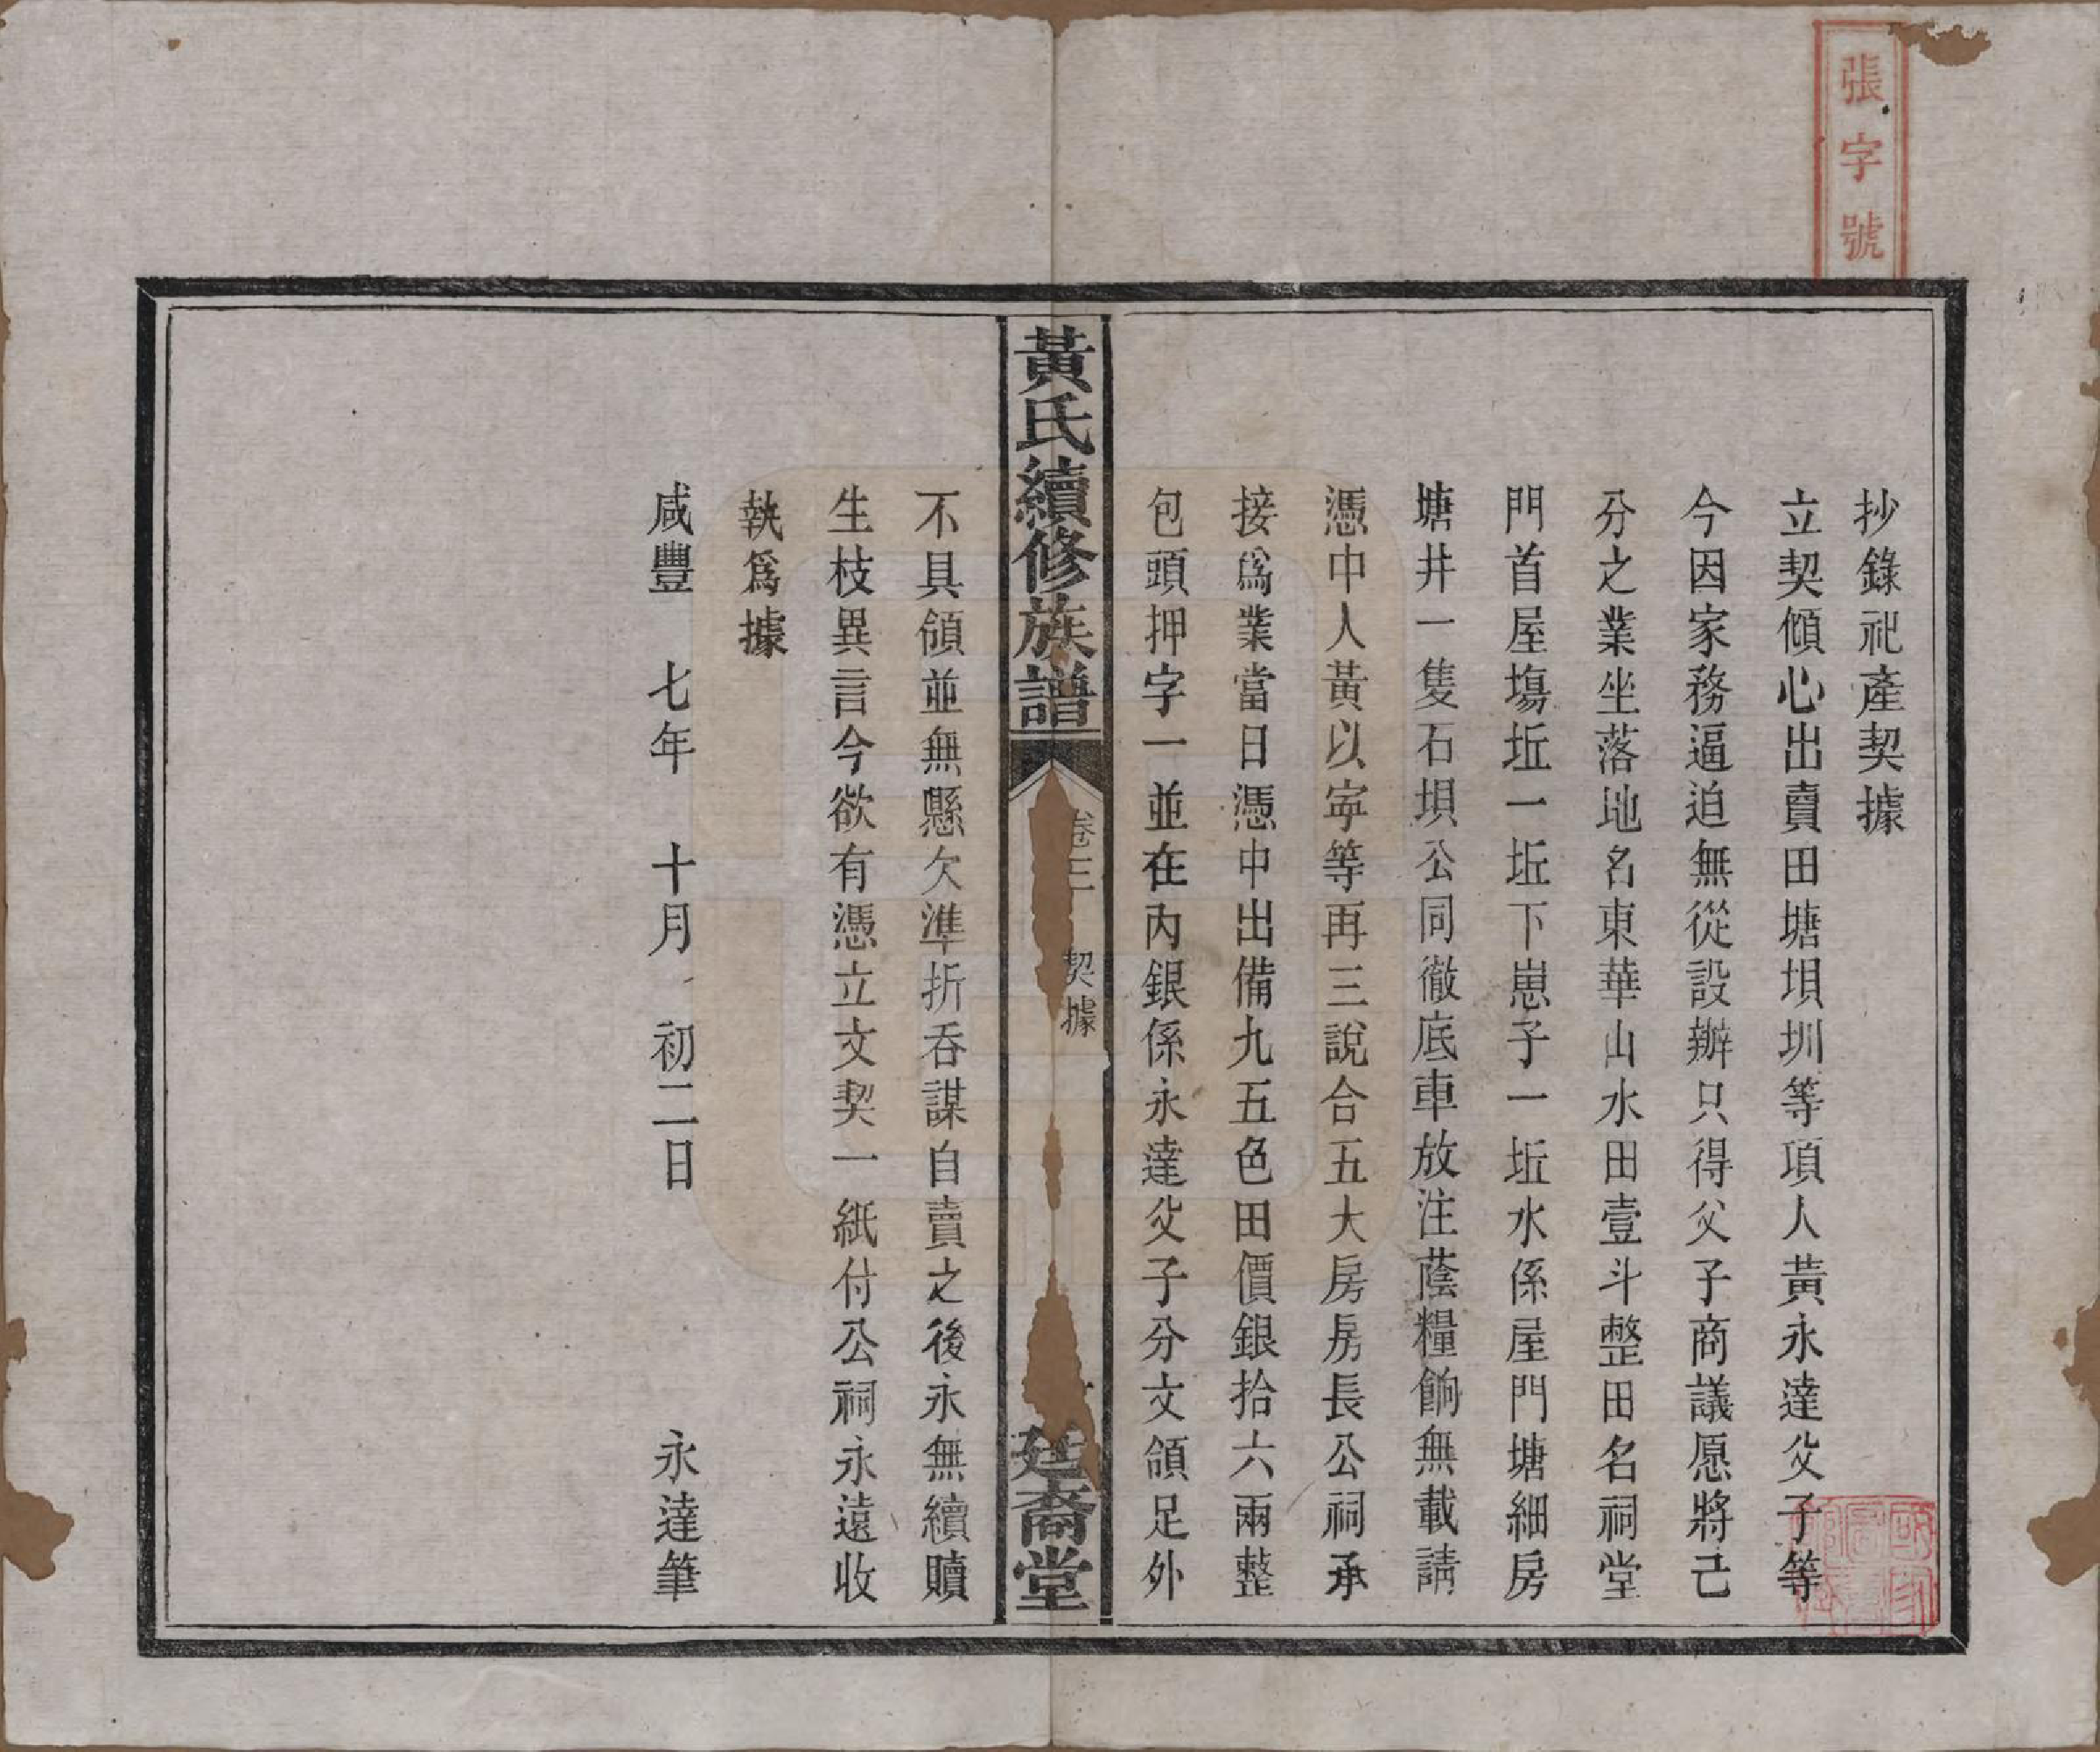 張字號
抄錄祀產契據
立契傾心出賣田塘垻圳等項人黃永達父子等
今因家務逼迫無從設辦只得父子商議愿將己
分之業坐落地名東華山水田壹斗整田名祠堂
門首屋塲坵一坵下崽子一坵水係屋門塘細房
塘井一隻石垻公同徹底車放注蔭糧餉無載請
憑中人黃以寕等再三說合五大房房長公祠承
接爲業當日憑中出備九五色田價銀拾六兩整
包頭押字一並在內銀係永達父子分文領足外
黃氏續修族譜
卷三 契據
廷裔堂
不具領並無懸欠準折吞謀自賣之後永無續贖
生枝異言今欲有憑立文契一紙付公祠永遠收
執爲據
咸豐 七年 十月 初二日 永達筆